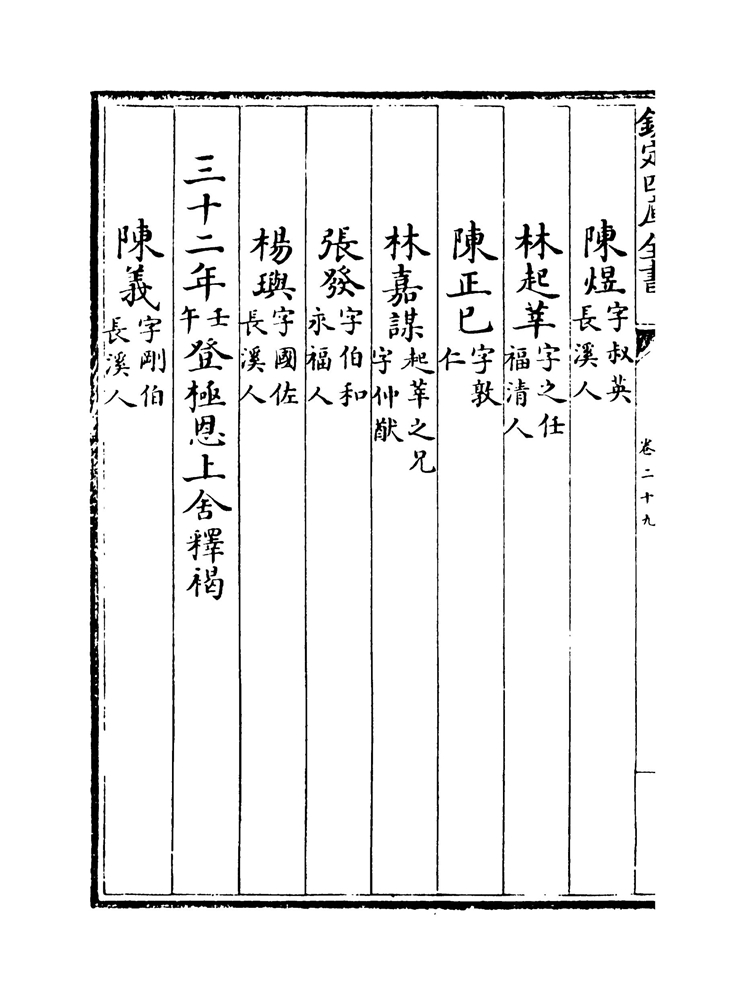 欽定四庫全書
卷二十九
陳煜字叔英長溪人
林起莘字之任福清人
陳正已字敦仁
林嘉謀起莘之兄字仲猷
張發字伯和永福人
楊璵字國佐長溪人
三十二年壬午登極恩上舍釋褐
陳義字剛伯長溪人